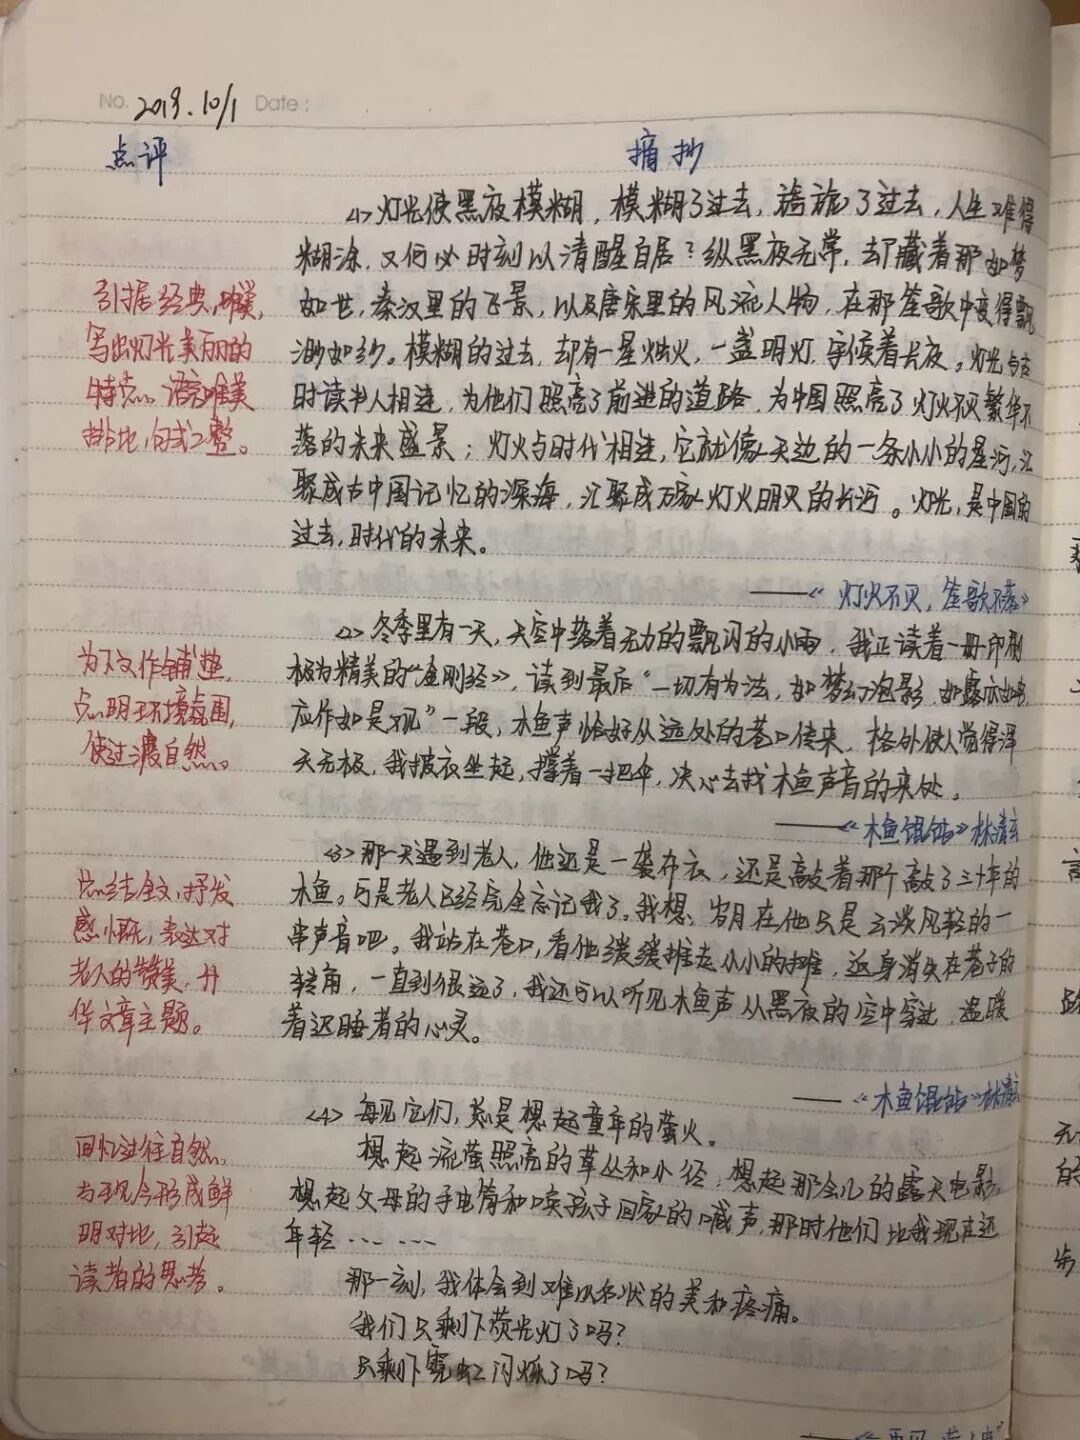 No. 2019.10/1 Date:
点评
摘抄
<1> 灯光使黑夜模糊，模糊了过去，旖旎了过去，人生难得
糊涂，又何必时刻以清醒自居？纵黑夜无常，却藏着那如梦
如世，秦汉里的飞景，以及唐宋里的风流人物，在那笙歌中变得飘
渺如纱。模糊的过去，却有一星烛火，一盏明灯，守候着长夜。灯光与古
时读书人相连，为他们照亮了前进的道路，为中国照亮了灯火不灭繁华不
落的未来盛景；灯火与时代相连，它就像天边的一条小小的星河，汇
聚成古中国记忆的深海，汇聚成万家灯火明灭的长河。灯光，是中国的
过去，时代的未来。
——《灯火不灭，笙歌不落》
引据经典，唯美，
写出灯光美丽的
特点。语言唯美
排比，句式工整。
<2> 冬季里有一天，天空中落着无力的飘闪的小雨，我正读着一册印刷
极为精美的《金刚经》，读到最后“一切有为法，如梦幻泡影，如露亦如电，
应作如是观”一段，木鱼声恰好从远处的巷口传来，格外使人觉得泽
天无极，我披衣坐起，撑着一把伞，决心去找木鱼声音的来处。
——《木鱼馄饨》林清玄
为下文作铺垫，
点明环境氛围，
使过渡自然。
<3> 那一天遇到老人，他还是一袭布衣，还是敲着那个敲了三十年的
木鱼。可是老人已经完全忘记我了。我想，岁月在他只是云淡风轻的一
串声音吧。我站在巷口，看他缓缓推走小小的摊，返身消失在巷子的
转角，一直到很远了，我还可以听见木鱼声从黑夜的空中穿过，温暖
着迟睡者的心灵。
——《木鱼馄饨》林清玄
总结全文，抒发
感慨，表达对
老人的赞美，升
华文章主题。
<4> 每见它们，总是想起童年的萤火。
想起流萤照亮的草丛和小径，想起那会儿的露天电影，
想起父母的手电筒和唤孩子回家的喊声，那时他们比我现在还
年轻……
那一刻，我体会到难以名状的美和疼痛。
我们只剩下荧光灯了吗？
只剩下霓虹闪烁了吗？
回忆过往自然，
与现今形成鲜
明对比，引起
读者的思考。